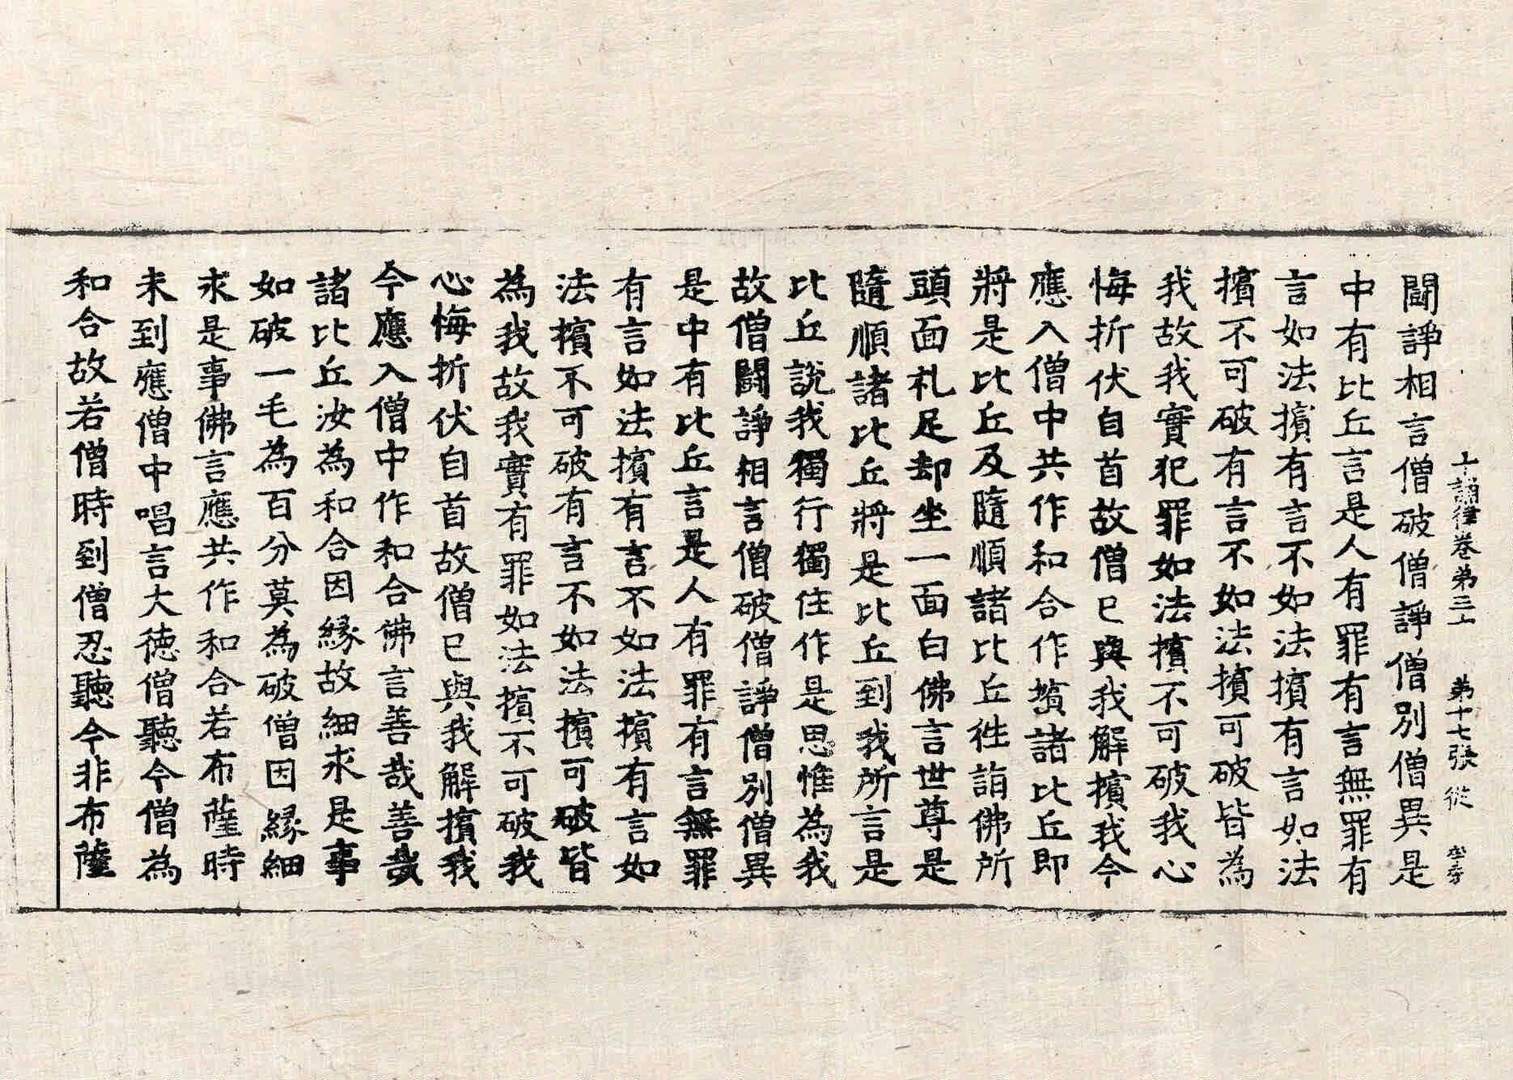 十誦律卷第三十 第十七張 從
鬪諍相言僧破僧諍僧別僧異是
中有比丘言是人有罪有言無罪有
言如法擯有言不如法擯有言如法
擯不可破有言不如法擯可破皆為
我故我實犯罪如法擯不可破我心
悔折伏自首故僧已與我解擯我今
應入僧中共作和合作擯諸比丘即
將是比丘及隨順諸比丘徃詣佛所
頭面礼足却坐一面白佛言世尊是
隨順諸比丘將是比丘到我所言是
比丘說我獨行獨住作是思惟為我
故僧鬪諍相言僧破僧諍僧別僧異
是中有比丘言是人有罪有言無罪
有言如法擯有言不如法擯有言如
法擯不可破有言不如法擯可破皆
為我故我實有罪如法擯不可破我
心悔折伏自首故僧已與我解擯我
今應入僧中作和合佛言善哉善哉
諸比丘汝為和合因緣故細求是事
如破一毛為百分莫為破僧因緣細
求是事佛言應共作和合若布薩時
未到應僧中唱言大德僧聽今僧為
和合故若僧時到僧忍聽今非布薩